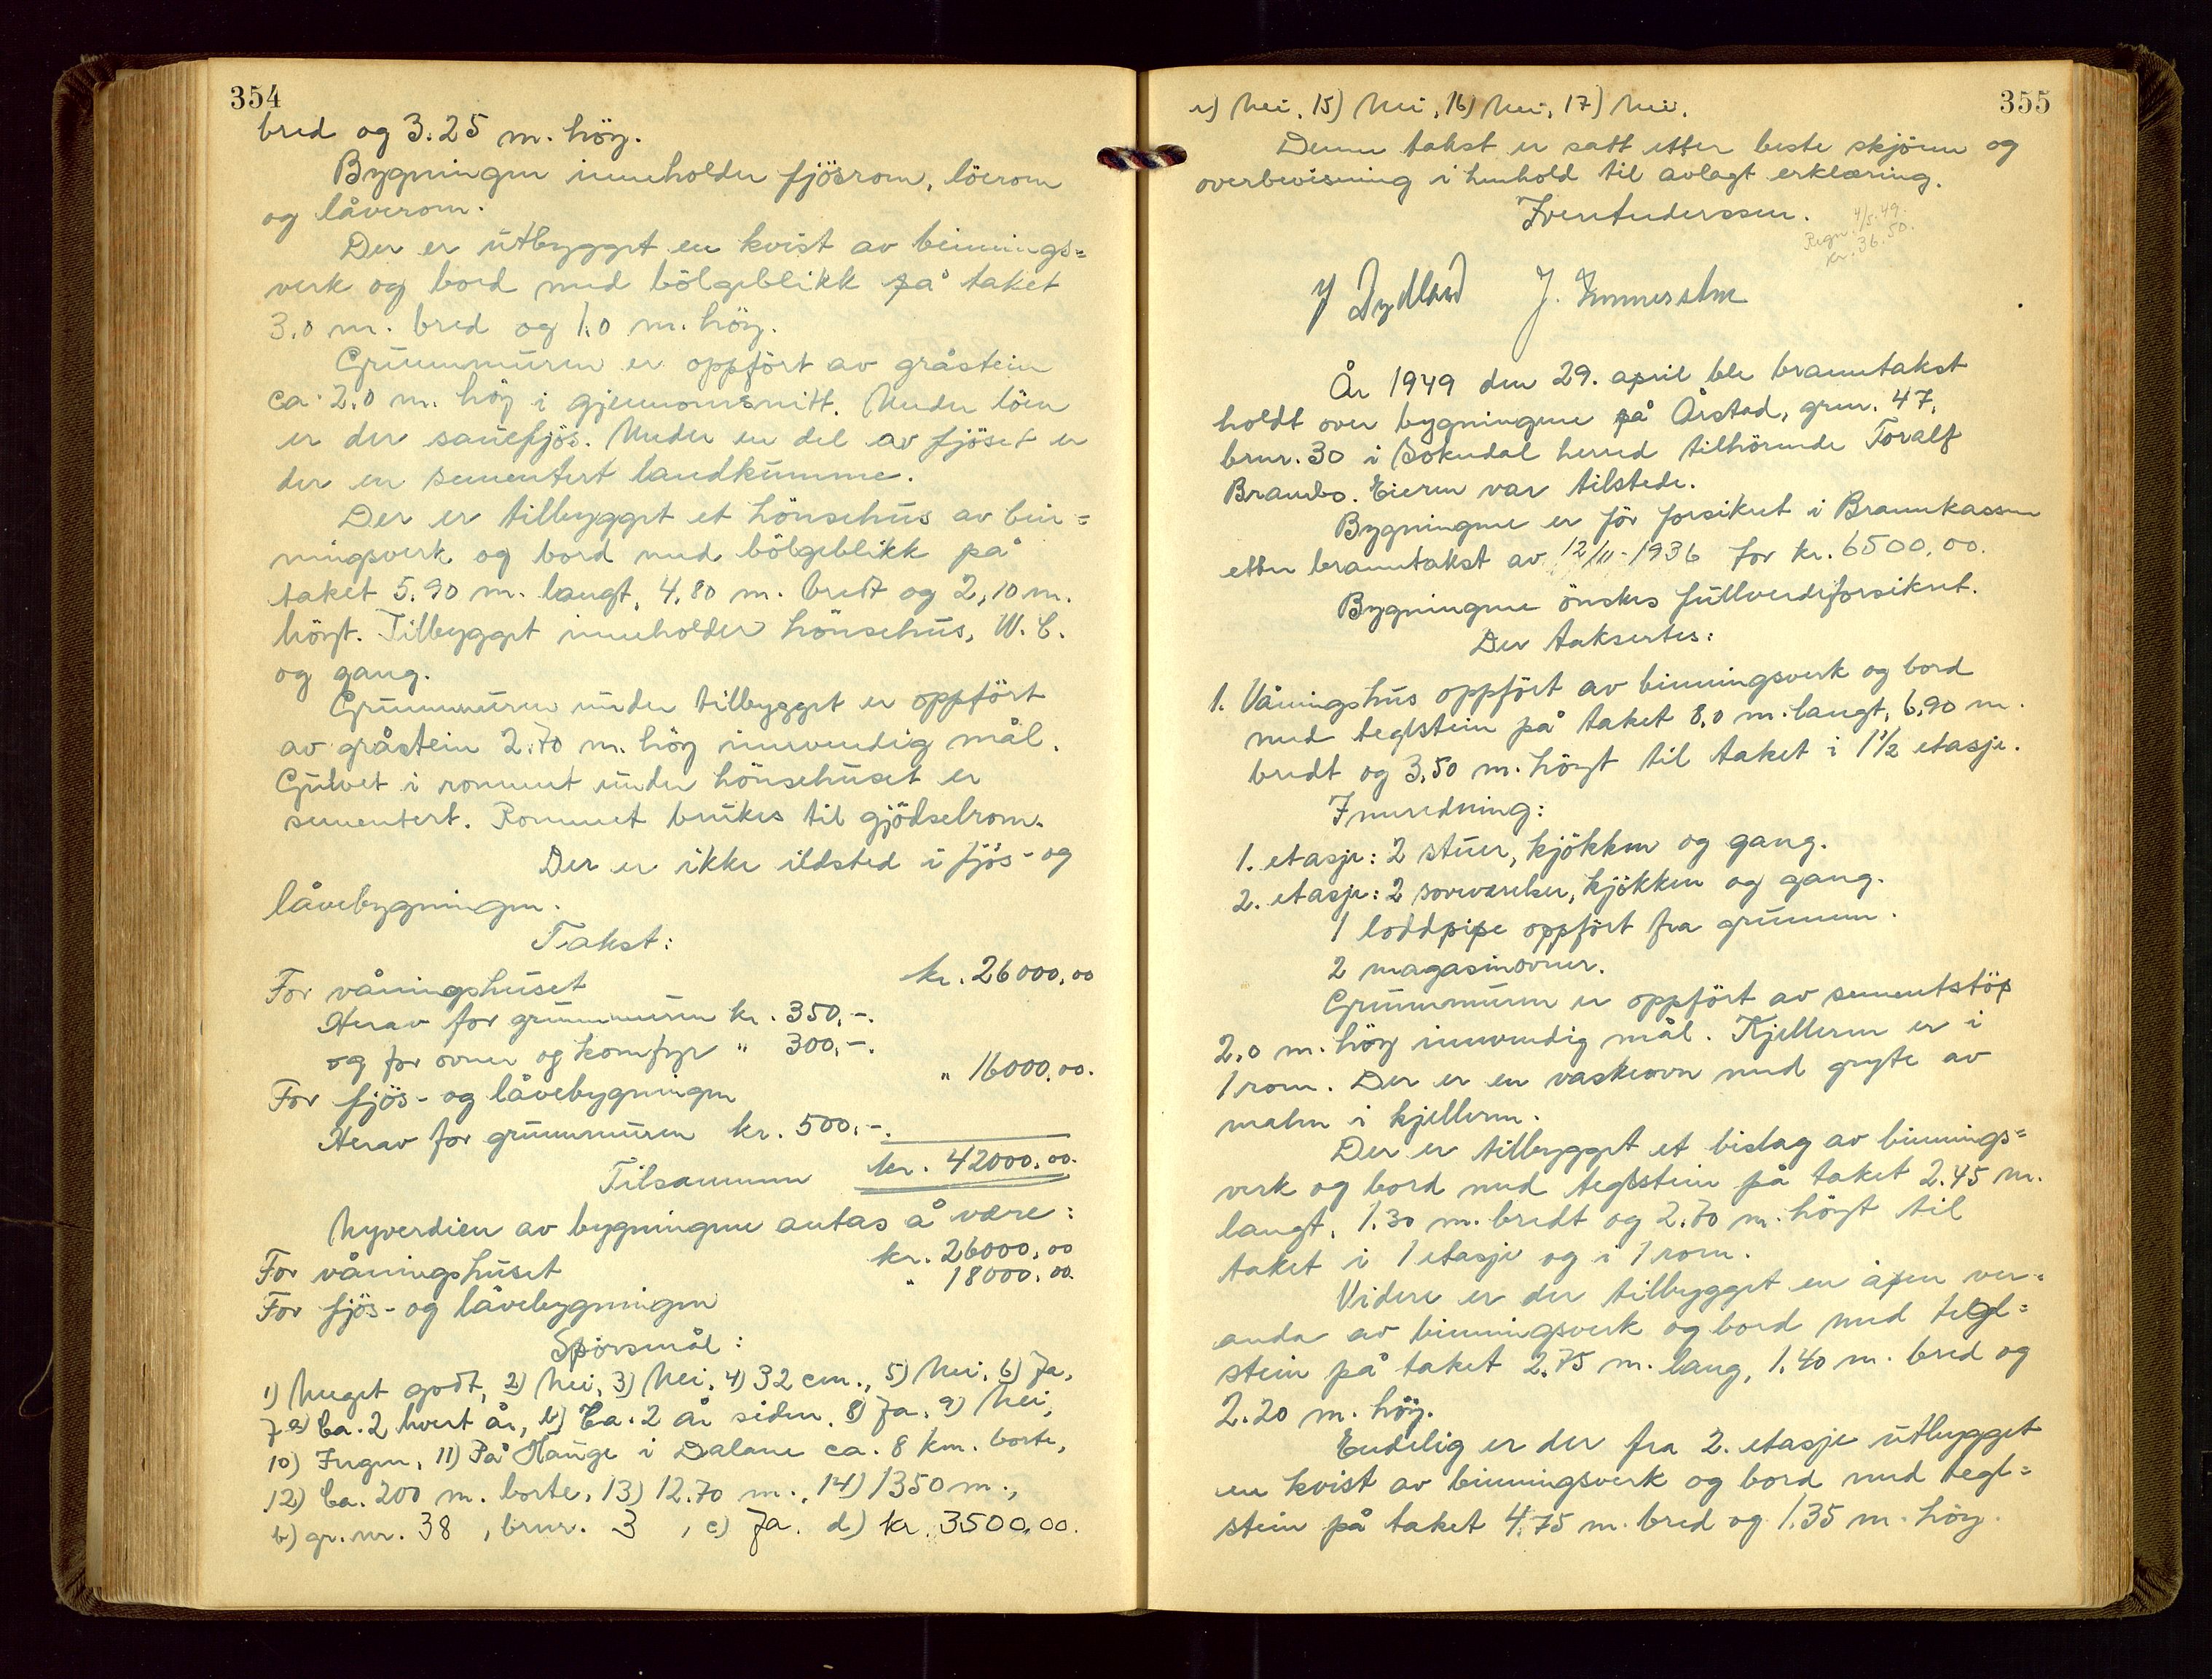 354
bred og 3.25 m. höy.
Bygningen inneholder fjösrom, löerom
og låverom.
Der er utbygget en kvist av binnings=
verk og bord med bölgeblikk på taket
3.0 m. bred og 1.0 m. höy.
Grunnmuren er oppfört av gråstein
ca. 2.0 m. höy i gjennomsnitt. Under löen
er der sauefjös. Under en del av fjöset er
der en sementert landkumme.
Der er tilbygget et hönsehus av bin=
ningsverk og bord med bölgeblikk på
taket 5.90 m. langt, 4.80 m. bredt og 2,10 m.
höyt. Tilbygget inneholder hönsehus, W.C.
og gang.
Grunnmuren under tilbygget er oppfört
av gråstein 2.70 m. höy innvendig mål.
Gulvet i rommet under hönsehuset er
sementert. Rommet brukes til gjödselrom.
Der er ikke ildsted i fjös- og
låvebygningen.
Takst:
For våningshuset kr. 26000,00
Herav for grunnmuren kr. 350,-.
og for ovner og komfyr " 300,-.
For fjös- og låvebygningen " 16000,00.
Herav for grunnmuren kr. 500,-.
Tilsammen kr. 42000,00.
Nyverdien av bygningene antas å være:
For våningshuset kr. 26000,00
For fjös- og låvebygningen " 18000,00.
Spörsmål:
1) Meget godt, 2) Nei, 3) Nei, 4) 32 cm., 5) Nei, 6) Ja,
7 a) Ca. 2 hvert år, b) Ca. 2 år siden. 8) Ja. 9) Nei,
10) Ingen, 11) På Hauge i Dalane ca. 8 km. borte,
12) Ca. 200 m. borte, 13) 12.70 m., 14) 1350 m.,
b) gr.nr. 38, brnr. 3, c) Ja. d) kr. 3500,00.
355
e) Nei, 15) Nei, 16) Nei, 17) Nei.
Denne takst er satt etter beste skjönn og
overbevisning i henhold til avlagt erklæring.
Iver Anderssen.
4/5.49.
Regn.
kr. 36.50.
Y Dydland J. Emmerstm
År 1949 den 29. april ble branntakst
holdt over bygningene på Årstad, grnr. 47,
brnr. 30 i Sokndal herred tilhörende Toralf
Brambo. Eieren var tilstede.
Bygningene er för forsikret i Brannkassen
etter branntakst av 12/11-1936 for kr. 6500,00.
Bygningene önskes fullverdiforsikret.
Der taksertes:
1. Våningshus oppfört av binningsverk og bord
med teglstein på taket 8,0 m. langt, 6,90 m.
bredt og 3,50 m. höyt til taket i 1 1/2 etasje.
Innredning:
1. etasje: 2 stuer, kjökken og gang.
2. etasje: 2 soveværelser, kjökken og gang.
1 loddpipe oppfört fra grunnen.
2 magasinovner.
Grunnmuren er oppfört av sementstöp
2,0 m. höy innvendig mål. Kjelleren er i
1 rom. Der er en vaskeovn med gryte av
malm i kjelleren.
Der er tilbygget et bislag av binnings=
verk og bord med teglstein på taket 2.45 m.
langt, 1.30 m. bredt og 2.70 m. höyt til
taket i 1 etasje og i 1 rom.
Videre er der tilbygget en åpen ver=
anda av binningsverk og bord med tegl=
stein på taket 2.75 m. lang, 1.40 m. bred og
2.20 m. höy.
Endelig er der fra 2. etasje utbygget
en kvist av binningsverk og bord med tegl=
stein på taket 4.75 m. bred og 1.35 m. höy.